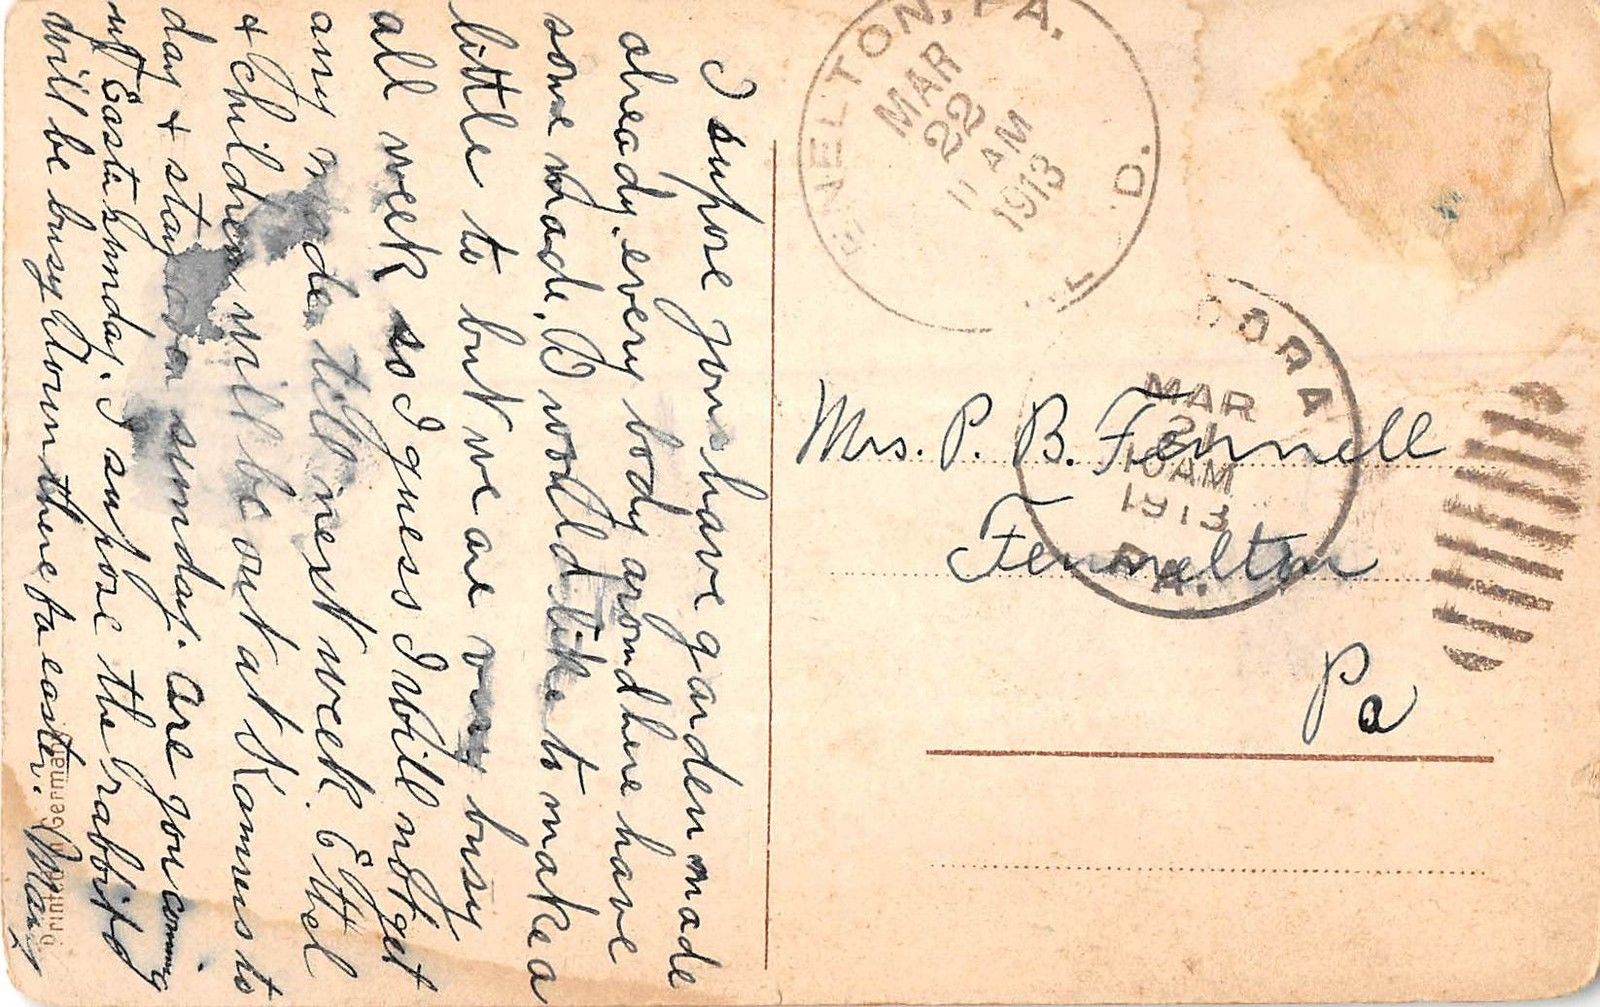 I supose you have garden made
already, every body around here have
some made, I would like to make a
little to but we are very busy
all week so I guess I will not get
any made till next week. Ethel
& Children will be out at Karnes to
day & stay over sunday. Are you comming
up Easter Sunday. I supose the rabbits
will be busy down there for easter. Mary
Printed Germany
FENELTON, PA.
MAR
22
11 AM
1913
D.
CORA
MAR
21
10AM
1913
PA.
Mrs. P. B. Fennell
Fennelton
Pa